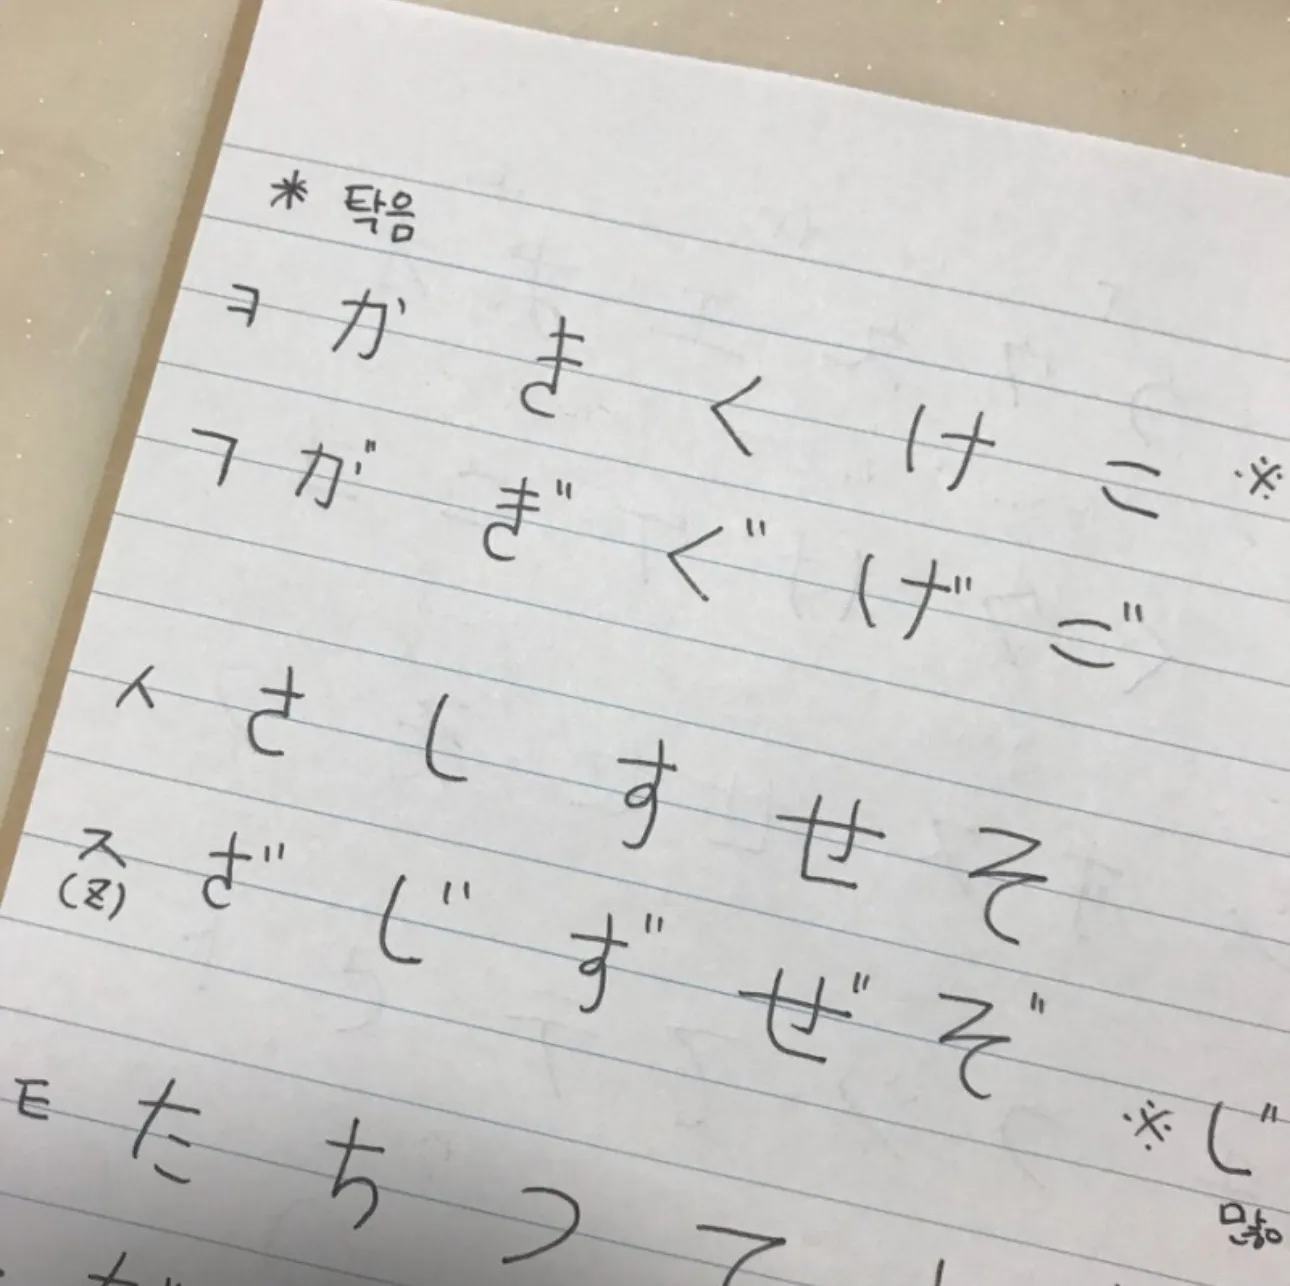 * 탁음
ㅋ か き く け こ ※
ㄱ が ぎ ぐ げ ご
ㅅ さ し す せ そ
ㅈ ざ じ ず ぜ ぞ
(Z)
※ じ
ㅌ た ち つ て